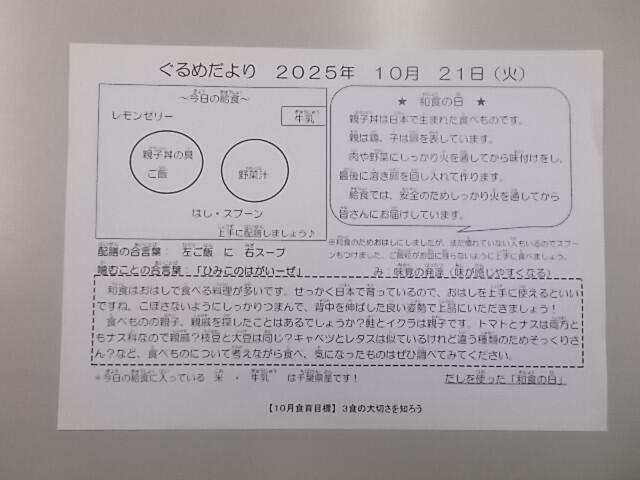 ぐるめだより 2025年 10月 21日（火）
～今日の給食～
レモンゼリー
牛乳
親子丼の具
ご飯
野菜汁
はし・スプーン
上手に配膳しましょう♪
★ 和食の日 ★
親子丼は日本で生まれた食べものです。
親は鶏、子は卵を表しています。
肉や野菜にしっかり火を通してから味付けをし、
最後に溶き卵を回し入れて作ります。
給食では、安全のためしっかり火を通してから
皆さんにお届けしています。
配膳の合言葉： 左ご飯 に 右スープ
※和食のためおはしにしましたが、まだ慣れていない人もいるのでスプー
ンもつけました。ご飯粒がお皿に残らないように上手に食べましょう。
噛むことの合言葉：「ひみこのはがいーぜ」
み：味覚の発達（味が感じやすくなる）
和食はおはしで食べる料理が多いです。せっかく日本で育っているので、おはしを上手に使えるといい
ですね。こぼさないようにしっかりつまんで、背中を伸ばした良い姿勢で上品にいただきましょう！
食べものの親子、親戚を探したことはあるでしょうか？鮭とイクラは親子です。トマトとナスは両方と
もナス科なので親戚？枝豆と大豆は同じ？キャベツとレタスは似ているけれど違う種類のためそっくりさ
ん？など、食べものについて考えながら食べ、気になったものはぜひ調べてみてください。
＊今日の給食に入っている 米 ・ 牛乳 は千葉県産です！
だしを使った「和食の日」
【10月食育目標】3食の大切さを知ろう